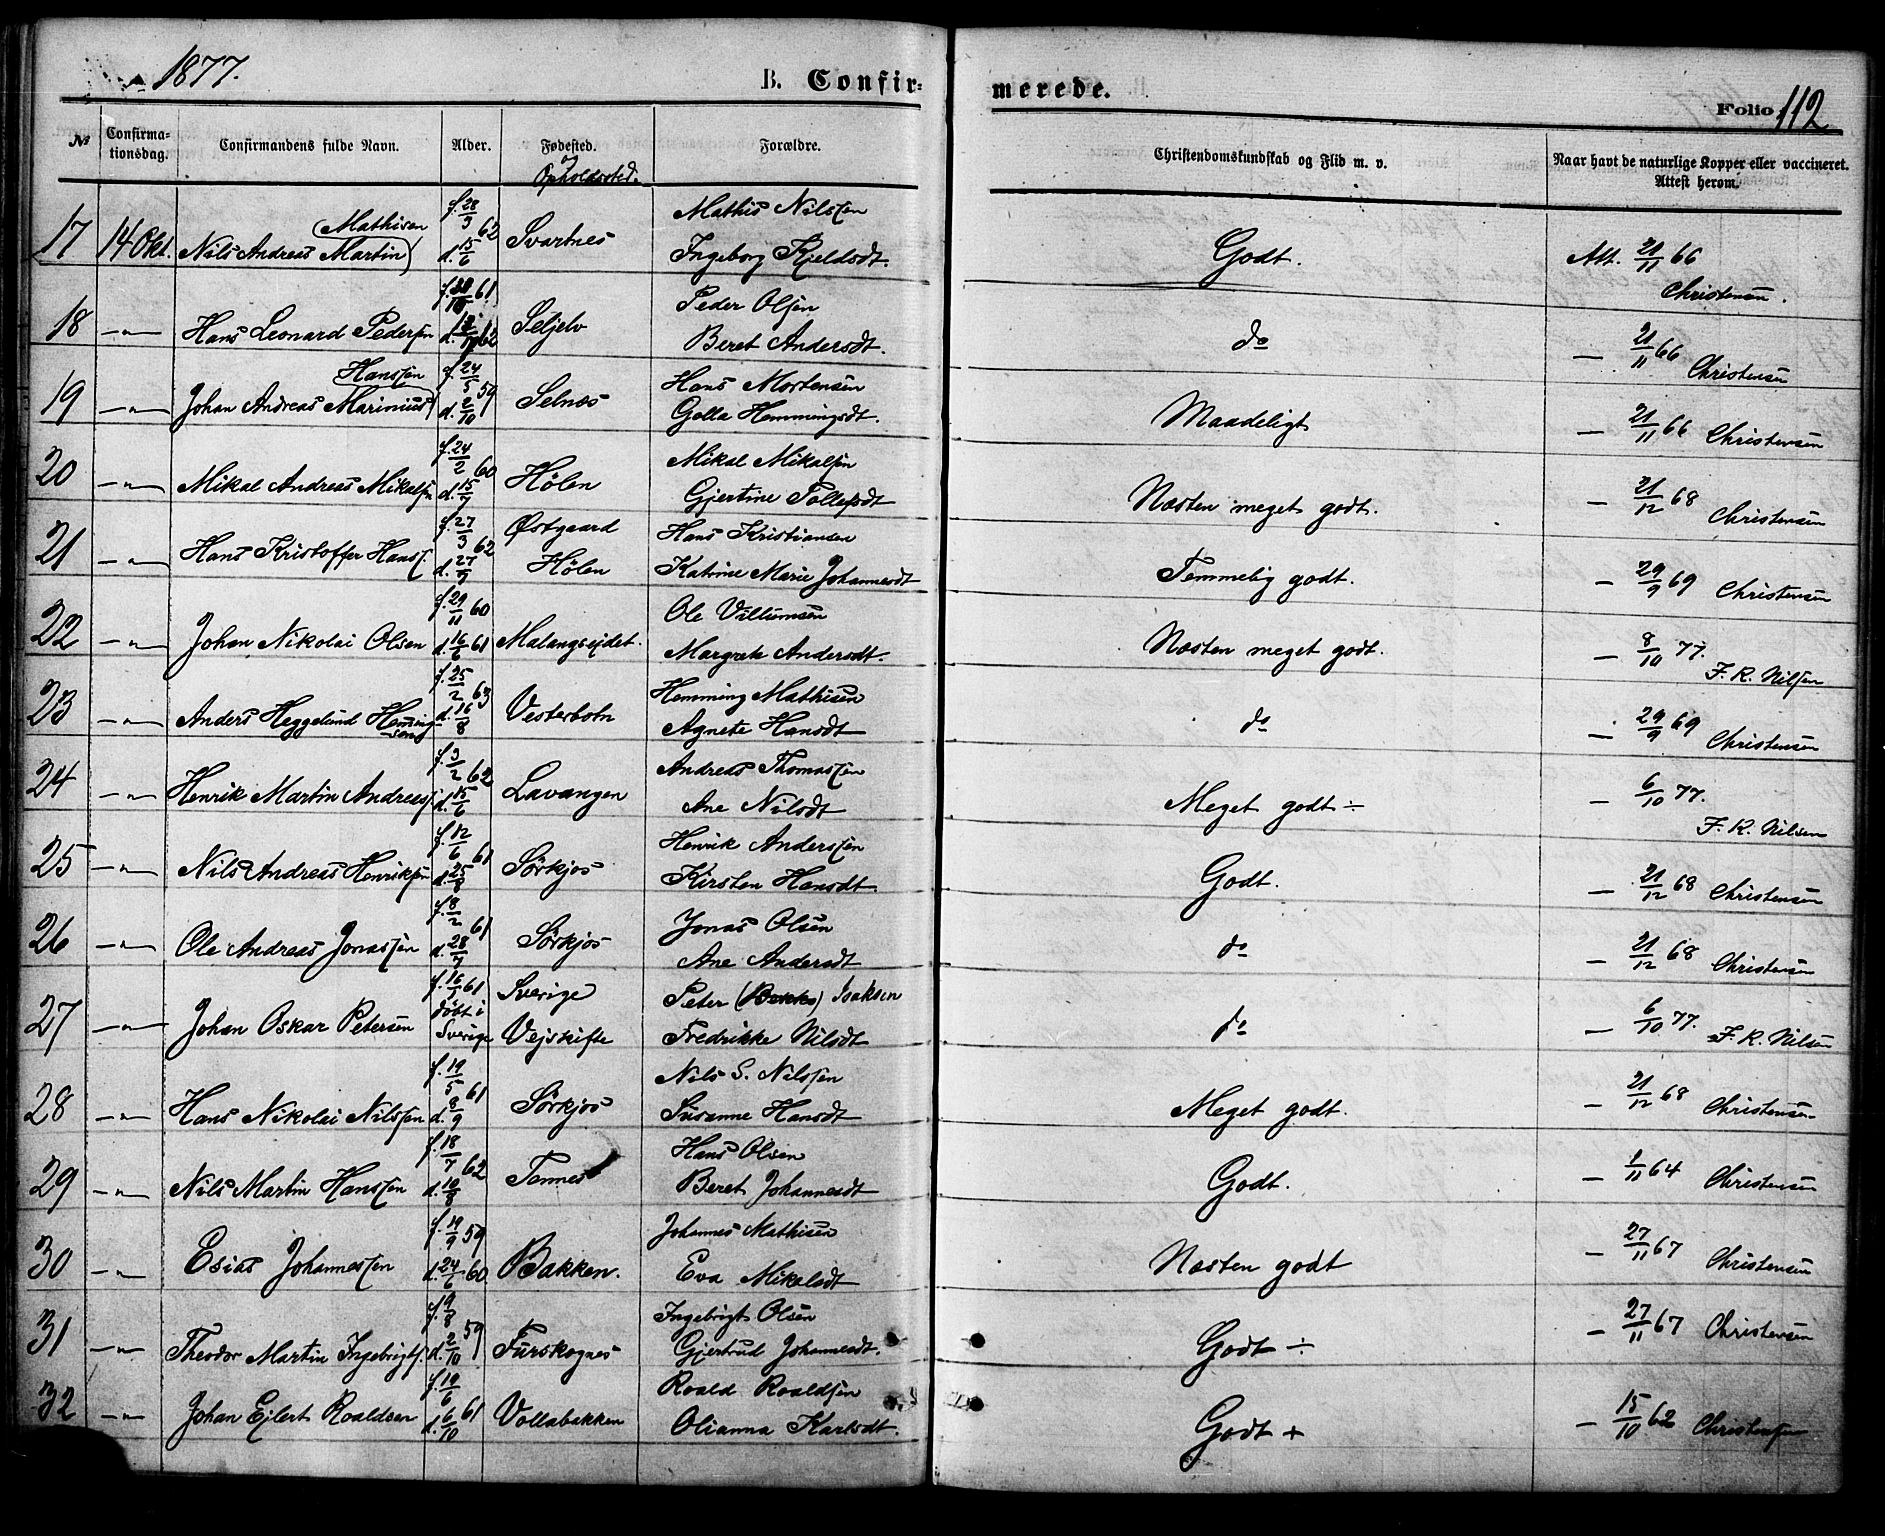 1877.
B. Confir=
merede.
Folio 112
№
Confirma-
tionsdag.
Confirmandens fulde Navn.
Alder.
Fødested.
og
Opholdssted.
Forældre.
Christendomskundskab og Flid m. v.
Naar havt de naturlige Kopper eller vaccineret.
Attest herom.
17 14 Okt. Nils Andreas Martin Mathisen f. 28/9 62 d. 15/6 Svartnes Mathis Nilssen Ingeborg Kjeldsdt. Godt. Att. 21/11 66 Christensen.
18 -"- Hans Leonard Pedersen 61 62 Seljelv Peder Olsen Beret Andersdt. do — 21/11 66 Christensen
19 -"- Johan Andreas Marinius Hanssen f. 24/5 59 d. 2/10 Selnæs Hans Mortensen Golla Hemmingsdt. Maadeligt — 21/11 66 Christensen
20 -"- Mikal Andreas Mikalsen f. 24/2 60 d. 15/7 Hølen Mikal Mikalsen Gjertine Tollefsdt Næsten meget godt. — 21/12 68 Christensen
21 -"- Hans Kristoffer Hanss. f. 27/3 62 d. 27/9 Østgaard Hølen Hans Kristiansen Katrine Marie Johannesdt Temmelig godt. — 29/9 69 Christensen
22 -"- Johan Nikolai Olsen f. 29/11 60 d. 16/6 61 Malangseidet. Ole Villumsen Margrete Andersdt. Næsten meget godt. — 8/10 77. F. R. Nilsen
23 -"- Anders Heggelund Heming-
sen f. 25/2 63 d. 16/8 Vesterbotn Hemming Mathisen Agnete Hansdt do — 29/9 69 Christensen
24 -"- Henrik Martin Andreass. f. 3/2 62 d. 15/6 Lavangen Andreas Thomassen Ane Nilsdt Meget godt ÷ — 6/10 77. F. R. Nilsen
25 -"- Nils Andreas Henriksen f. 12/6 61 d. 25/8 Sørkjos Henrik Anderssen Kirsten Hansdt. Godt. — 21/12 68 Christensen
26 -"- Ole Andreas Jonassen f. 8/2 61 d. 28/7 Sørkjos Jonas Olsen Ane Andersdt do — 21/12 68 Christensen
27 -"- Johan Oskar Petersen 61 døbt i Sverige Sverige Vejskifte Peter Isaksen Fredrikke Nilsdt do — 6/10 77. F. R. Nilsen
28 -"- Hans Nikolai Nilssen f. 19/5 61 d. 8/9 Sørkjos Nils S. Nilssen Susanne Hansdt Meget godt. — 21/12 68 Christensen
29 -"- Nils Martin Hanssen f. 18/7 62 d. 10/8 Tannes Hans Olsen Beret Johannesdt Godt. — 1/11 64 Christensen
30 -"- Esias Johannessen f. 19/9 59 d. 24/6 60 Bakken. Johannes Mathisen Eva Mikalsdt Næsten godt — 27/11 67 Christensen
31 -"- Theodor Martin Ingebrigts. f. 9/8 59 d. 2/10 Furskognes Ingebrigt Olsen Gjertrud Johannesdt. Godt ÷ — 27/11 67 Christensen
32 -"- Johan Ejlert Roaldsen f. 19/6 61 d. 6/10 Vollabakken Roald Roaldsen Olianna Karlsdt. Godt + — 15/10 62 Christensen